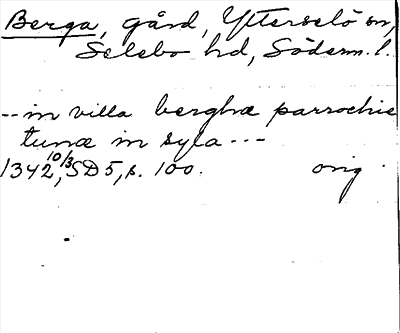 Berga, gård, Ytterselö sn,
Selebo hd, Söderm. l.
-- in villa berghæ parrochie
tunæ in syla ---
1342 10/3, SD 5, s. 100. orig.